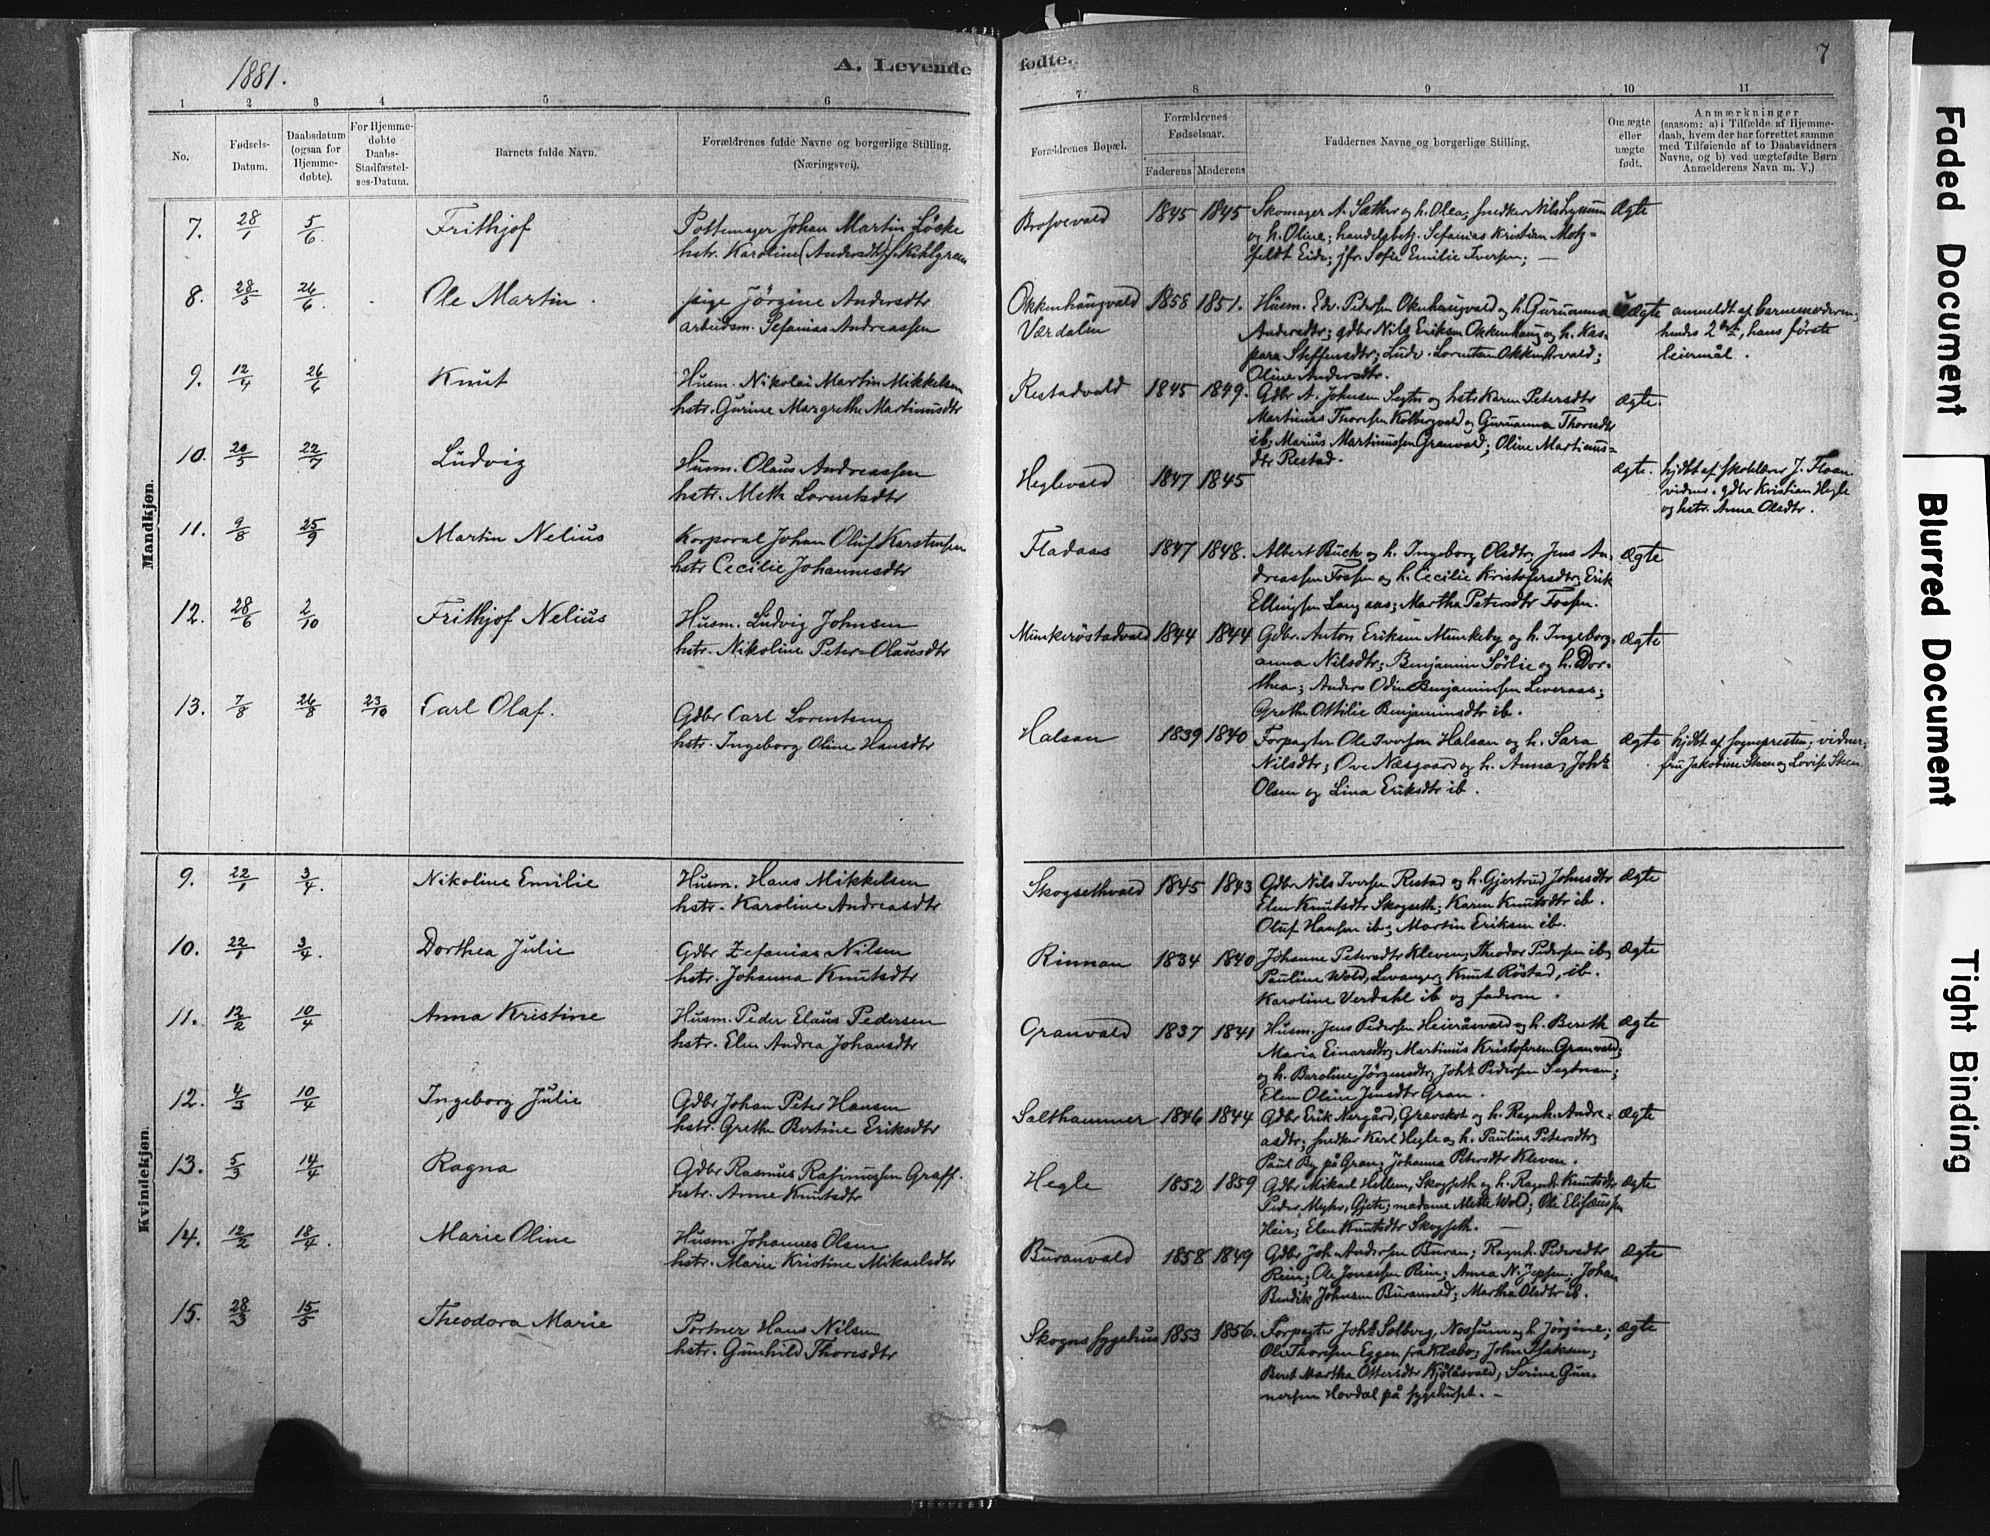 1881.
A. Levende
1 2 3 4 5 6
No.
Fødsels-Datum.
Daabsdatum (ogsaa for Hjemme-døbte).
For Hjemme-døbte Daabs-Stadfæstel-ses-Datum.
Barnets fulde Navn.
Forældrenes fulde Navne og borgerlige Stilling. (Næringsvei).
Mandkjøn.
7. 28/1 5/6. Frithjof Pottemager Johan Martin Löske
hstr. Karoline (Andersdtr) f. Kihlgreen
8. 28/5 26/6. Ole Martin. pige Jörgine Andersdtr
arbeidsm. Sefanias Andreassen
9. 12/4 26/6 Knut Husm. Nikolai Martin Mikkelsen
hstr. Gurine Margrethe Martinusdtr
10. 20/5 22/7 Ludvig Husm. Olaus Andreassen
hstr. Mette Lorentsdtr
11. 9/8 25/9 Martin Nelius Korporal Johan Oluf Karstensen
hstr Cecilie Johannesdtr
12. 28/6 2/10 Frithjof Nelius Husm. Ludvig Johnsen
hstr. Nikoline Peter-Olausdtr
13. 7/8 26/8 23/10 Carl Olaf. Gdbr Carl Lorentsen
hstr. Ingeborg Oline Hansdtr
Kvindekjøn.
9. 22/1 3/4. Nikoline Emilie Husm. Hans Mikkelsen
hstr. Karoline Andreasdtr
10. 22/1 3/4. Dorthea Julie Gdbr Zefanias Nilsen
hstr. Johanna Knutsdtr
11. 13/2 10/4 Anna Kristine Husm. Peder Elaus Pedersen
hstr. Elen Andrea Johansdtr
12. 4/3 10/4 Ingeborg Julie Gdbr Johan Peter Hansen
hstr. Grethe Bertine Eriksdtr
13. 5/3 14/4 Ragna Gdbr Rasmus Rasmussen Graff.
hstr. Anne Knutsdtr
14. 12/2 18/4. Marie Oline Husm. Johannes Olsen
hstr. Marie Kristine Mikaelsdtr
15. 28/3 15/5 Theodora Marie Portner Hans Nilsen
hstr. Gunhild Thoresdtr
fødte.
7
7 8 9 10 11
Forældrenes Bopæl.
Forældrenes Fødselsaar.
Faderens Moderens
Faddernes Navne og borgerlige Stilling.
Om ægte eller uægte født.
Anmærkninger
(saasom: a) i Tilfælde af Hjemme-
daab, hvem der har forrettet samme
med Tilføiende af to Daabsvidners
Navne, og b) ved uægtefødte Børn
Anmelderens Navn m. V.)
1845 1845 Skomager A. Sæther og h. Olea; snedker Nils ægte
og h. Oline; handelsbetj. Sefanias Kristian Motz-
feldt Eide; jfr. Sofie Emilie Iversen; —
Okkenhaugvald 1858 1851. Husm. Edv. Pedersen Okenhaugvald og h. Guruanna uægte anmeldt af barnemoderen,
Værdalen Andersdtr; gdbr Nils Eriksen Okkenhaug og h. Kas- hendes 2det, hans første
para Steffensdtr; Ludv. Lorentsen leiermål.
Oline Andersdtr.
Restadvald 1845 1849. Gdbr A. Johnsen Segtn og hstr Karen Petersdtr ægte.
Martinus Thoresen Kolbergvald og Guruanna Thoresdtr
ib; Marius Martinussen Granvald; Oline Martinus-
dtr Restad.
Heglevald 1847 1845 ægte. hjdbt af skolelærer J. Floan
vidner. gdbr Kristian Hegle
og hstr. Anna Olsdtr.
Fladaas 1847 1848. Albert Buch og h. Ingeborg Olsdtr; Jens An- ægte
dreassen Fossen og h. Cecilie Kristofersdtr; Erik
Ellingsen Langaas; Martha Petersdtr Fossen.
Munkeröstadvald 1844 1844 Gdbr. Anton Eriksen Munkeby og h. Ingeborg- ægte
anna Nilsdtr; Benjamin Sörlie og h. Dor-
thea; Anders Odin Benjaminsen Leveraas;
Grethe Ottilie Benjaminsdtr ib.
Halsan 1839 1840 Forpagter Ole Iversen Halsan og h. Sara ægte hjdbt af sognepresten; vidner;
Nilsdtr; Ove Næsgaard og h. Anna; Johs fru Jakobine Steen og Lovise Steen.
Olsen og Lina Eriksdtr ib.
Skogsethvald 1845 1843 Gdbr Nils Iversen Restad og h. Gjertrud Johnsdtr ægte
Elen Knutsdtr Skogseth; Karen Knutsdtr ib.
Oluf Hansen ib; Martin Eriksen ib.
Rinnan 1834 1840 Johanne Petersdtr Kleven; Theodor Pedersen ib; ægte
Pauline Wold, Levanger; Knut Röstad, ib.
Karoline Verdahl ib og faderen.
Granvald 1837 1841 Husm. Jens Pedersen Heieråsvald og h. Bereth ægte
Maria Einarsdtr; Martinus Kristofersen Granvald;
og h. Baroline Jörgensdtr; Johs Pedersen Segtnan;
Elen Oline Jensdtr Gran.
Salthammer 1846 1844 Gdbr Erik Nergård, Gravskot og h. Ragnh. Andre- ægte
asdtr; snedker Karl Hegle og h. Pauline Petersdtr;
Paul By på Gran; Johanna Petersdtr Kleven.
Hegle 1852 1859 Gdbr Mikael Hellem, Skogseth og h. Ragnh. Knutsdtr ægte
Peder Myhr, Gjete; madame Mette Wold; Ole Elisæussen
Heir; Elen Knutsdtr Skogseth. —
Buranvald 1858 1849 Gdbr Joh. Andersen Buran; Ragnh. Pedersdtr ægte
Rein; Ole Jonassen Rein; Anna N. Jepsen; Johan
Bendik Johnsen Buranvald; Martha Olsdtr ib.
Skogns sygehus 1853 1856. Forpagter Johs Solberg, Nossum og h. Jörgine; ægte
Ole Thoresen Eggen fra Klæbo; John Isaksen;
Beret Martha Ottersdtr Kjölåsvald; Serine Gun-
nersen Hovdal på sygehuset. —
Faded Document
Blurred Document
Tight Binding